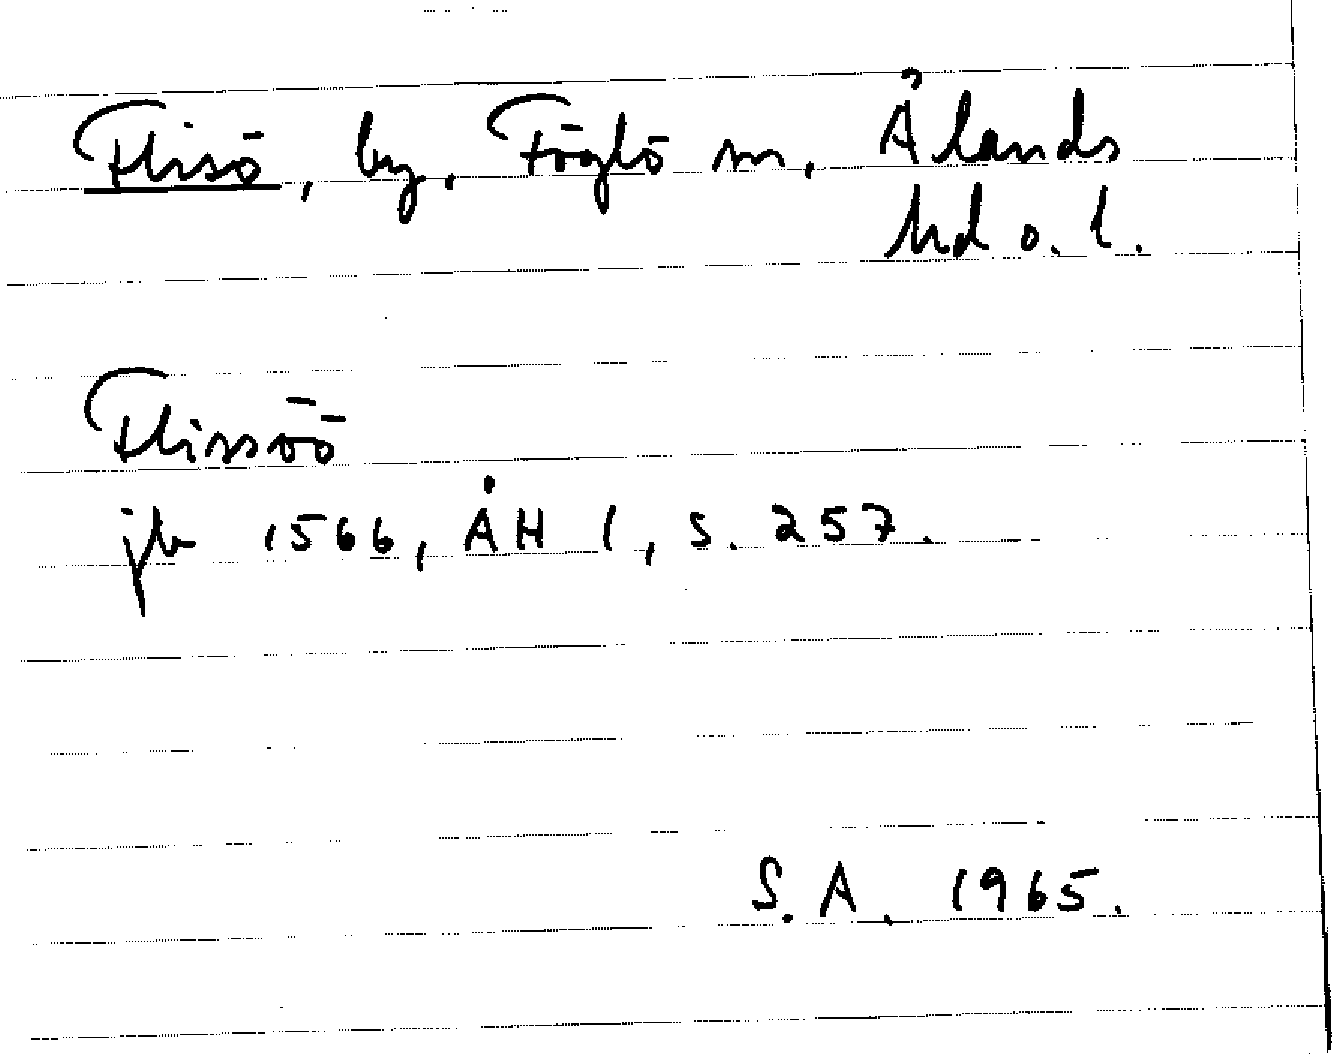 Flisö, by, Föglö sn, Ålands
hd o. l.
Flissöö
jb 1566, ÅH 1, s. 257.
S.A. 1965.